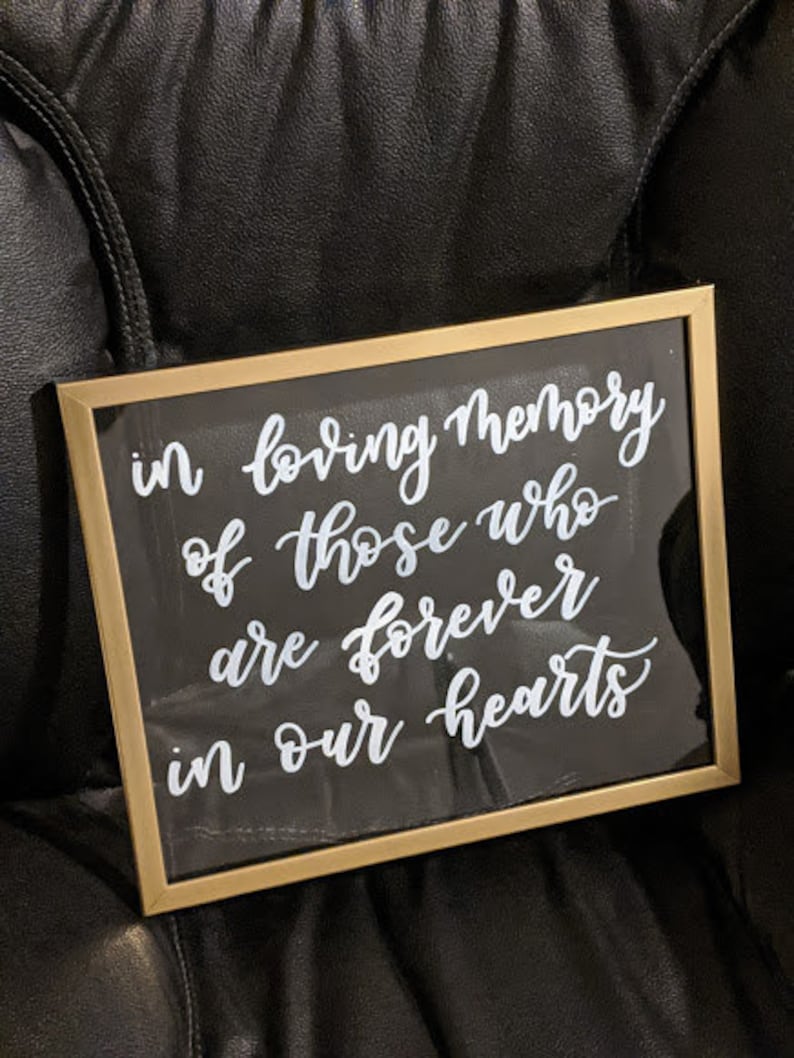 in loving memory
of those who
are forever
in our hearts